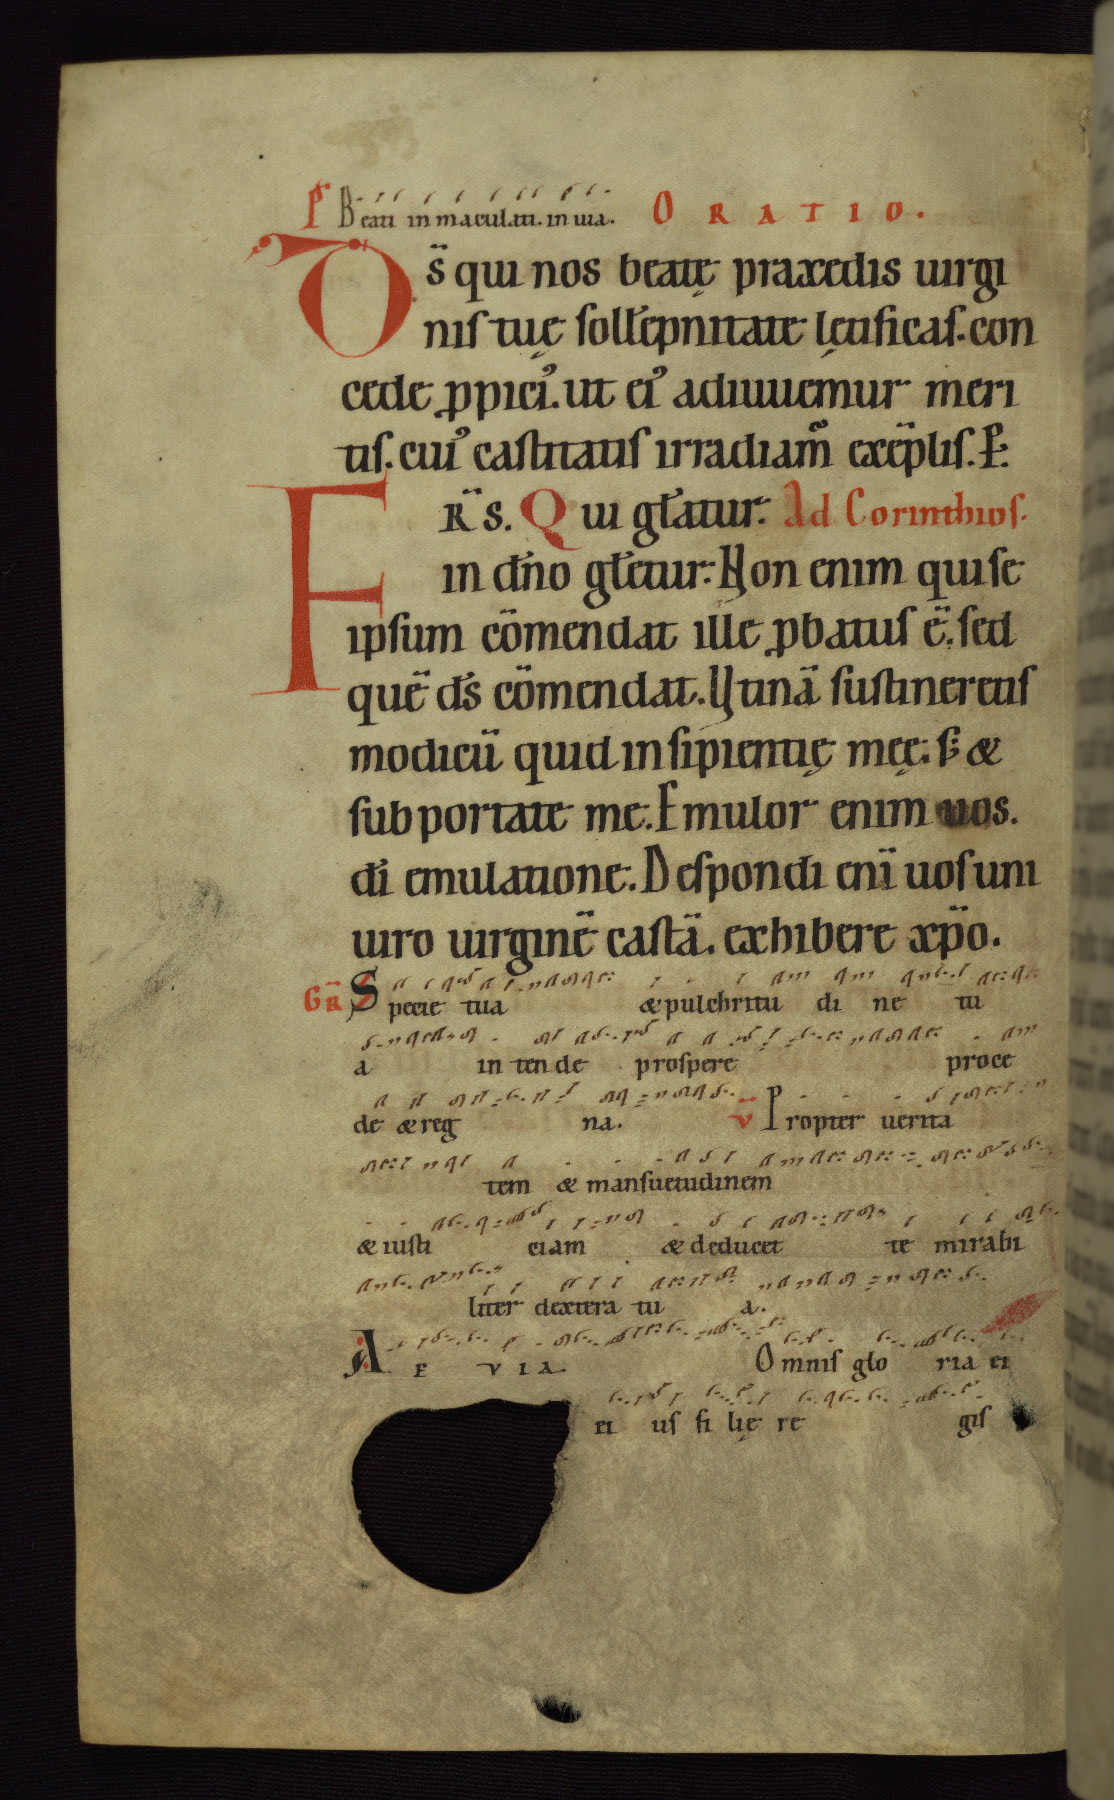 P̃ Beati in maculati. in uia. ORATIO.
Ds̄ qui nos beatę praxedis uirgi
nis tuę soll'epnitate lętificas. con
cede ꝓpiciꝰ. ut eiꝰ adiuuemur meri
tis. cuiꝰ castitatis irradiam̄ exēplis. P.
FR̄S. Qui gl'atur. Ad Corinthios.
in dn̄o gl'etur. Non enim qui se
ipsum cōmendat ille ꝓbatus ē. sed
quē ds̄ cōmendat. Utinā sustineretis
modicū quid insipientię meę. s; &
subportate me. Emulor enim uos.
di emulatione. Despondi enī uos uni
uiro uirginē castā. exhibere xp̄o.
GR̄ Specie tua & pulchritu di ne tu
a in ten de prospere proce
de & reg na. v̄ Propter uerita
tem & mansuetudinem
& iusti ciam & deducet te mirabi
liter dextera tu a.
A E V I A. Omnis glo ria ei
ei us fi lię re gis